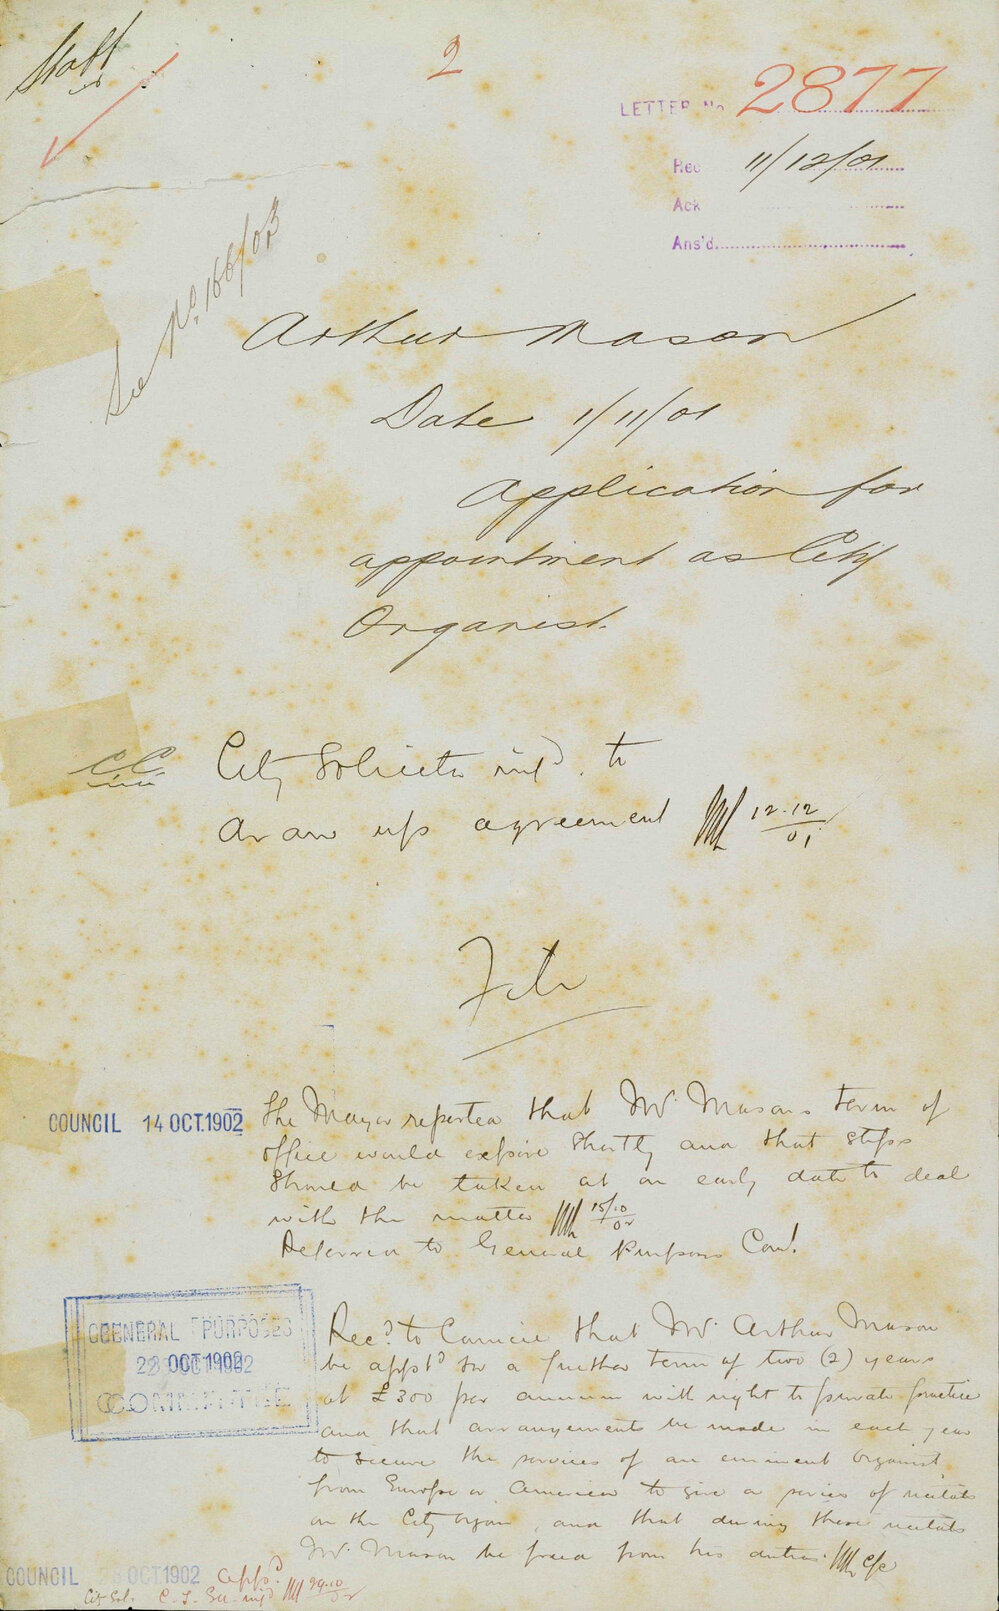 Staff
2
LETTER No 2877
Rec 11/12/01
Ack
Ans'd
See No. 166/03
Arthur Mason
Date 1/11/01
Application for
appointment as City
Organist.
C.C. City Solicitor inf'd. to
draw up agreement 12.12/01
File
COUNCIL 14 OCT.1902
The Mayor reported that Mr. Masons term of
office would expire shortly and that steps
should be taken at an early date to deal
with the matter 15/10/02
Referred to General Purposes Com.
GENERAL PURPOSES
22 OCT 1902
COMMITTEE
Rec'd to Council that Mr. Arthur Mason
be appt'd for a further term of two (2) years
at £300 per annum with right to private practice
and that arrangements be made in each year
to secure the services of an eminent organist
from Europe or America to give a series of recitals
on the City Organ, and that during these recitals
Mr. Mason be freed from his duties.
COUNCIL 28 OCT 1902 app'd
City Sol. inf'd 29.10/02